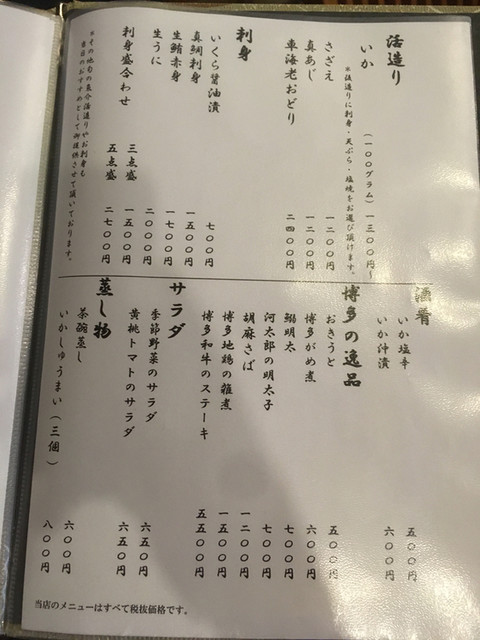 活造り
いか (一〇〇グラム) 一三〇〇円〜
※後造りに刺身・天ぷら・塩焼をお選び頂けます。
さざえ 一二〇〇円
真あじ 一二〇〇円
車海老おどり 二四〇〇円
刺身
いくら醤油漬 七〇〇円
真鯛刺身 一五〇〇円
生鮪赤身 一七〇〇円
生うに 二〇〇〇円
刺身盛合わせ 三点盛 一五〇〇円
五点盛 二七〇〇円
※その他旬の魚介活造りやお刺身も
毎日のおすすめとして御提供させて頂いております。
酒肴
いか塩辛 五〇〇円
いか沖漬 六〇〇円
博多の逸品
おきうと 五〇〇円
博多がめ煮 六〇〇円
鰯明太 七〇〇円
河太郎の明太子 七〇〇円
胡麻さば 一二〇〇円
博多地鶏の雑煮 一五〇〇円
博多和牛のステーキ 五五〇〇円
サラダ
季節野菜のサラダ 六五〇円
黄桃トマトのサラダ 六五〇円
蒸し物
茶碗蒸し 六〇〇円
いかしゅうまい(三個) 八〇〇円
当店のメニューはすべて税抜価格です。